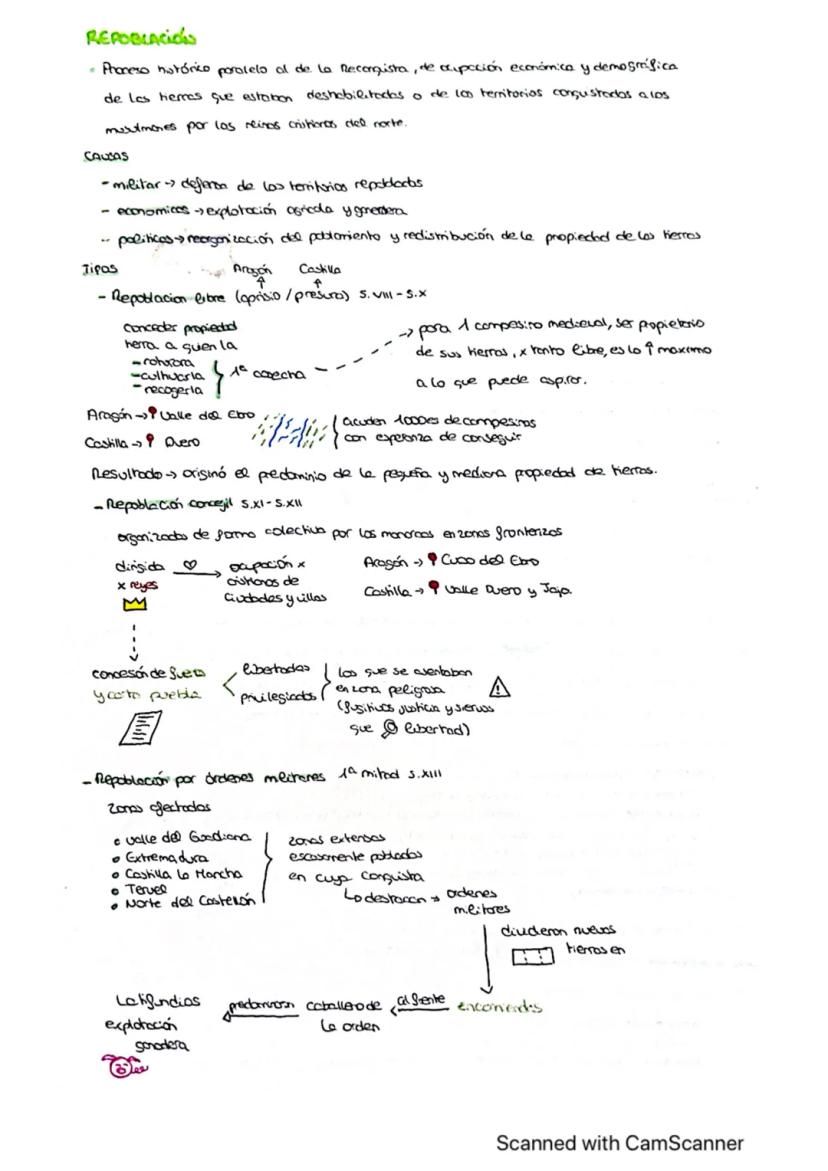 REPOBLACIÓN
Proceso histórico paralelo al de la Reconquista, de ocupación económica y demográfica
de las tierras que estaban deshabilitadas o de los territorios conquistados a los
musulmanes por los reinos cristianos del norte.
CAUSAS
- militar → defensa de los territorios repoblados
- economicas → explotación agrícola y ganadera
- políticas → reorganización del poblamiento y redistribución de la propiedad de las tierras
TIPOS Aragón Castilla
- Repoblacion libre (aprisio / presura) S. VIII - S. X
conceder propiedad
tierra a quien la
- roturara
- cultivarla
- recogerla
1ª cosecha
→ para 1 campesino medieval, ser propietario
de sus tierras, x tanto libre, es lo ↑ maximo
a lo que puede aspirar.
Aragón → Valle del Ebro
Castilla → Duero
acuden 1000es de campesinos
con esperanza de conseguir
Resultado → originó el predominio de la pequeña y mediana propiedad de tierras.
- Repoblación concejil S.XI - S.XII
organizadas de forma colectiva por los monarcas en zonas fronterizas
dirigida
x reyes
ocupación x
cristianos de
ciudades y villas
Aragón → Curso del Ebro
Castilla → Valle Duero y Tajo.
concesión de fueros
y carta puebla
libertades
privilegiados
los que se asentaban
en zona peligrosa
(fugitivos justicia y siervos
que libertad)
- Repoblación por órdenes militares 1ª mitad S.XIII
zonas afectadas
• Valle del Guadiana
• Extremadura
• Castilla la Mancha
• Teruel
• Norte del Castellón
zonas extensas
escasamente pobladas
en cuya conquista
destacan → ordenes
militares
dividieron nuevas
tierras en
encomiendas
al frente
caballero de
la orden
predominaron
Latifundios
explotación
ganadera
Scanned with CamScanner